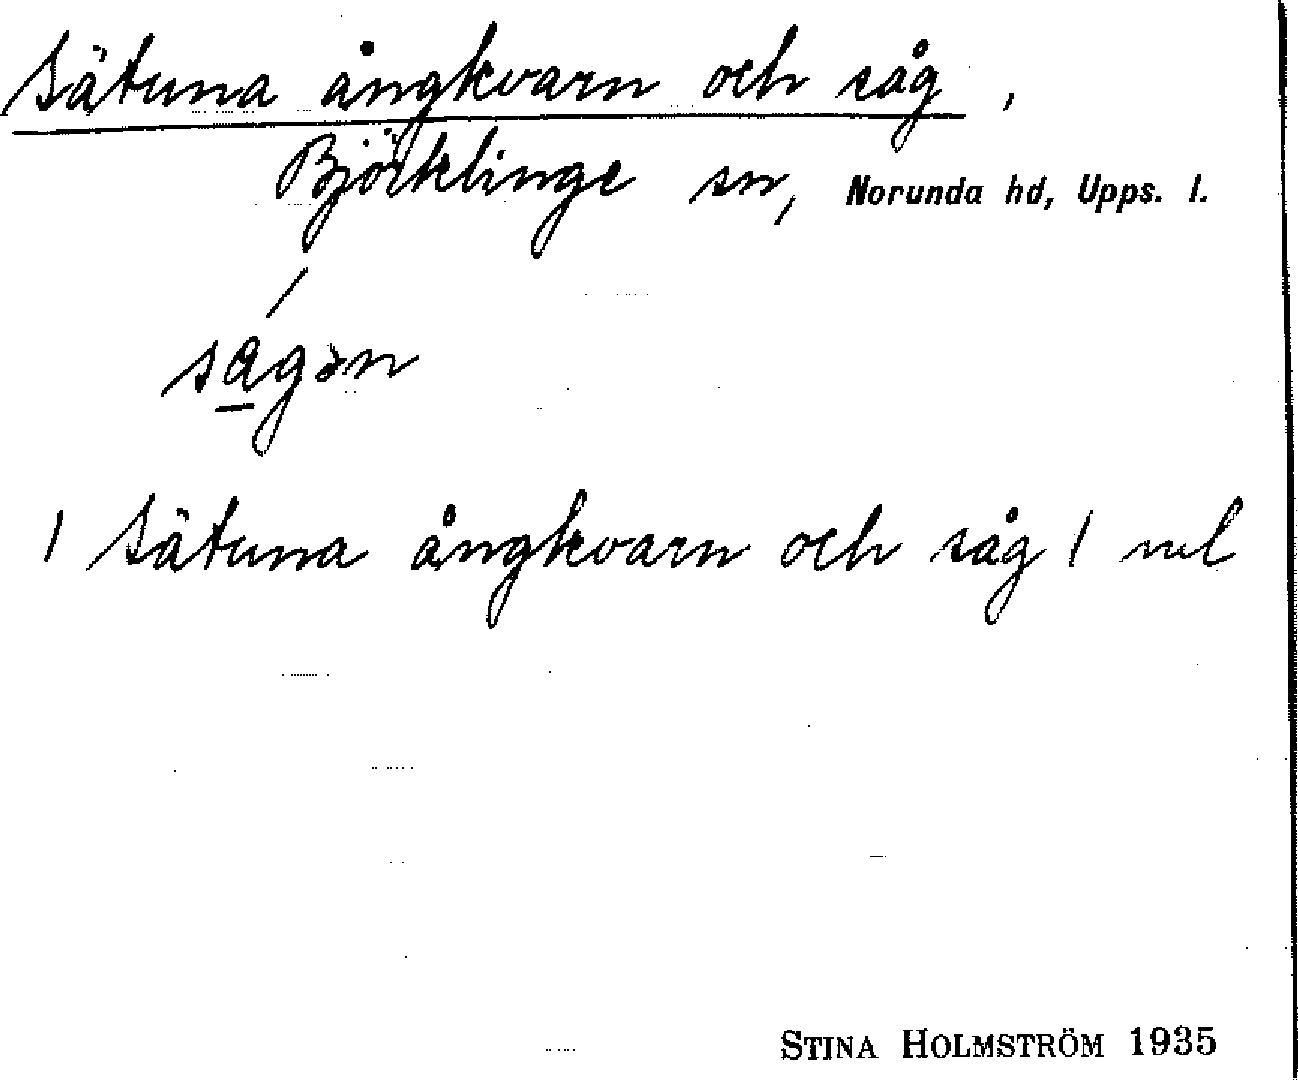 Sätuna ångkvarn och såg,
Björklinge sn, Norunda hd, Upps. l.
ságən
/ Sätuna ångkvarn och såg /
STINA HOLMSTRÖM 1935